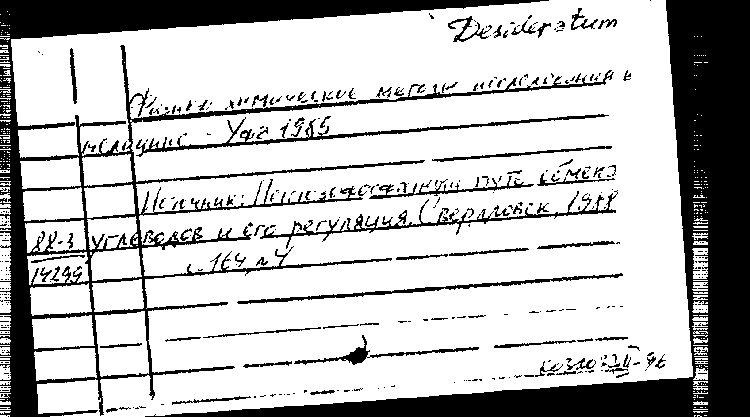 Desideratum
Физико химические методы исследования в
медицине. - Уфа, 1985
Источник: Пентозофосфатный путь обмена
88-3 углеводов и его регуляция. Свердловск, 1988
14299 с. 164, №4
96